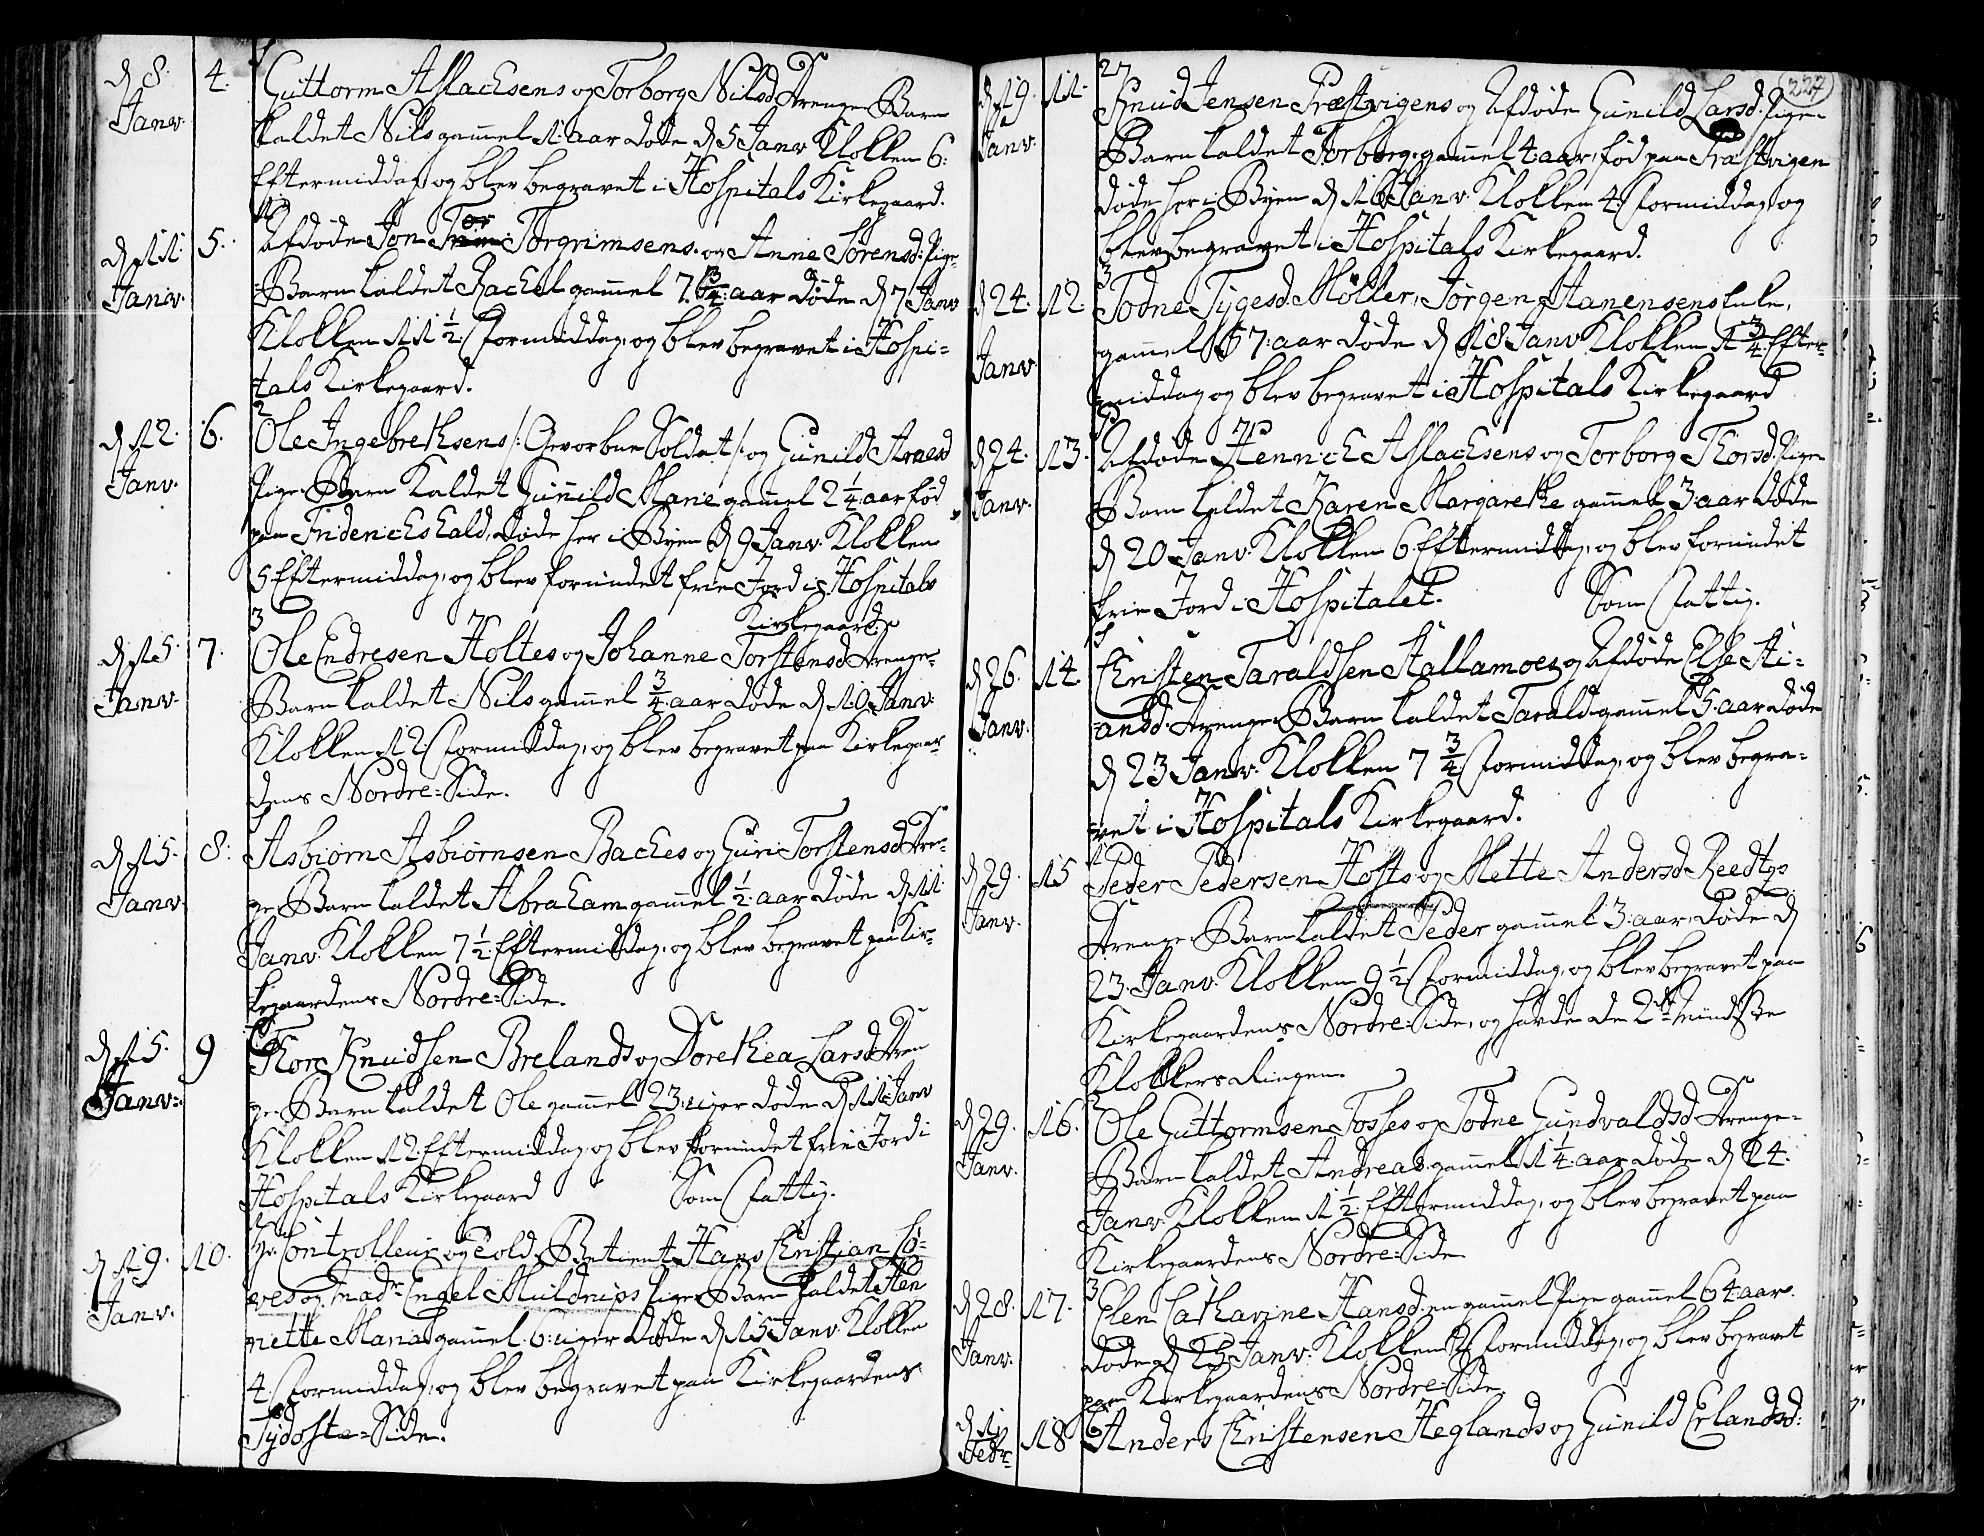 d 8. Janv. 4. Guttorm Aslachsens og Torborg Nilsd Drenge Barn
kaldet Nils gammel 1 aar døde d 5 Janv Klokken 6:
Eftermiddag og blev begravet i Hospitals Kirkegaard.
d 11. Janv. 5. Afdøde Jon Torgrimsens og Anne Sørensd: Pige-
Barn kaldet Rachel gammel 7 3/4 aar døde d 7 Janv
Klokken 11 1/2 Formiddag, og blev begravet i Hospi-
tals Kirkegaard.
d 12. Janv. 6. Ole Ingebrethsens /: Gevorben Soldat /: og Gunild
Pige Barn kaldet Gunild Marie gammel 2 1/4 aar fød
paa Friderichshald, døde her i Byen d 9 Janv. Klokken
5 Eftermiddag, og blev forundet frie Jord i Hospitals
Kirkegaard.
d 15. Janv. 7. Ole Endresen Holtes og Johanne Torstensd Drenge-
Barn kaldet Nils gammel 3/4 aar døde d 10 Janv.
Klokken 12 Formiddag, og blev begravet paa Kirkegaar-
dens Nordre-Side.
d 15. Janv. 8. Asbiørn Asbiørnsen Baches og Guri Torstensd Dren-
ge Barn kaldet Abraham gammel 1/2 aar døde d 11
Janv. Klokken 7 1/2 Eftermiddag, og blev begravet paa Kir-
kegaardens Nordre-Side.
d 15. Janv. 9 Thore Knudsen Brelands og Dorethea Larsd Dren
ge Barn kaldet Ole gammel 23 uger døde d 11 Janv
Klokken 12 Eftermiddag, og blev forundet frie Jord i
Hospitals Kirkegaard Som Fattig.
d 19. Janv. 10. Hr Controlleur og Told Betient Hans Christian Lø-
ves og Mad: Engel Pige Barn kaldet Hen
riette Maria gammel 6 uger døde d 15 Janv. Klokken
4 Formiddag, og blev begravet paa Kirkegaardens
Sydoste-Side.
227
d 19. Janv. 11. Knud Jensen Præstvigens og Afdøde Gunild Larsd. Pige-
Barn kaldet Torborg, gammel 4 aar, fød paa Præstvigen
døde her i Byen d 16 Janv. Klokken 4 Formiddag, og
blev begravet i Hospitals Kirkegaard.
d 24. Janv. 12. Todne Tygesd Møller, Jørgen Hanensens Enke,
gammel 67 aar døde d 18 Janv Klokken 1 3/4 Efter-
middag og blev begravet i Hospitals Kirkegaard
d 24. Janv. 13. Afdøde Henrich Aslachsens og Torborg Thorsd. Pige-
Barn kaldet Karen Margarethe gammel 3 aar døde
d 20 Janv. Klokken 6 Eftermiddag, og blev forundet
frie Jord i Hospitalet. Som Fattig.
d 26. Janv. 14. Christen Taraldsen Stallamoes og Afdøde Else
ansd. Drenge Barn kaldet Tarald gammel 5 aar døde
d 23 Janv. Klokken 7 3/4 Formiddag, og blev begra-
vet i Hospitals Kirkegaard.
d 29. Janv. 15 Peder Pedersen Hofts og Mette Andersd Reedtgs
Drenge Barn kaldet Peder gammel 3 aar, døde d
23. Janv. Klokken 9 1/2 Formiddag, og blev begravet paa
Kirkegaardens Nordre-Side, og havde de 2de mindste
Klokkers Ringen.
d 29. Janv. 16. Ole Guttormsen Fosses og Todne Gundvaldsd Drenge-
Barn kaldet Andreas gammel 1 1/4 aar døde d 24.
Janv. Klokken 1 1/2 Eftermiddag, og blev begravet paa
Kirkegaardens Nordre-Side
d 28. Janv. 17. Elen Catharine Hansd. en gammel Pige gammel 64 aar.
døde d 23 Janv. Klokken Formiddag, og blev begravet
paa Kirkegaardens Nordre-Side,
d 1 Febr 18 Anders Christensen Heglands og Gunild Erlandsd: